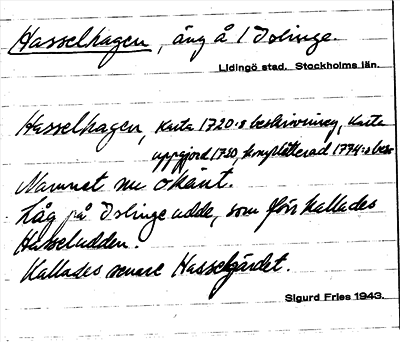 Hasselhagen, äng å I Dslinge.
Lidingö stad. Stockholms län.
Hasselhagen, Karta 1720:s beskrivning, Karta
uppgjord 1750, kompletterad 1774:s besr
Namnet nu okänt.
Låg på Dslinge udde, som förr kallades
Hasseludden.
Kallades senare Hasselgärdet.
Sigurd Fries 1943.